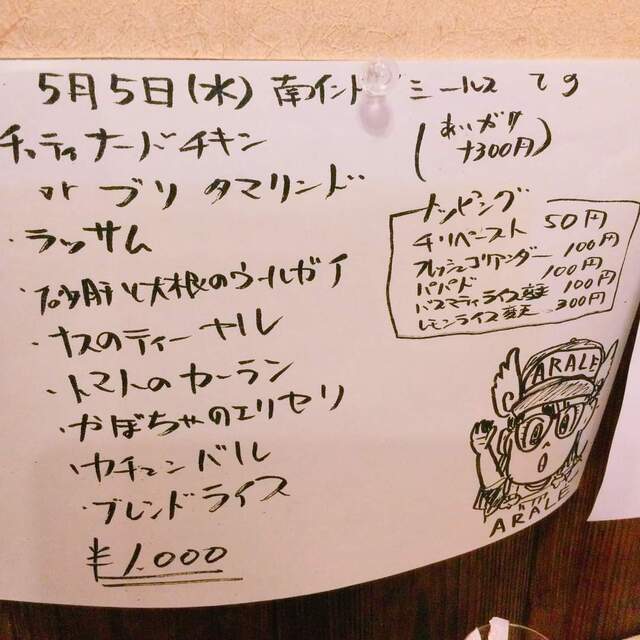 5月5日(水) 南インド ミールス
(あいがけ
+300円)
チェティナードチキン
or ブリ タマリンド
・ラッサム
・砂肝と大根のウールガイ
・ナスのティーヤル
・トマトのカーラン
・かぼちゃのエリセリ
・カチュンバル
・ブレンドライス
¥1.000
トッピング
チリペースト 50円
フレッシュコリアンダー 100円
パパド 100円
バスマティライス変更 100円
レモンライス変更 300円
ARALE
ARALE